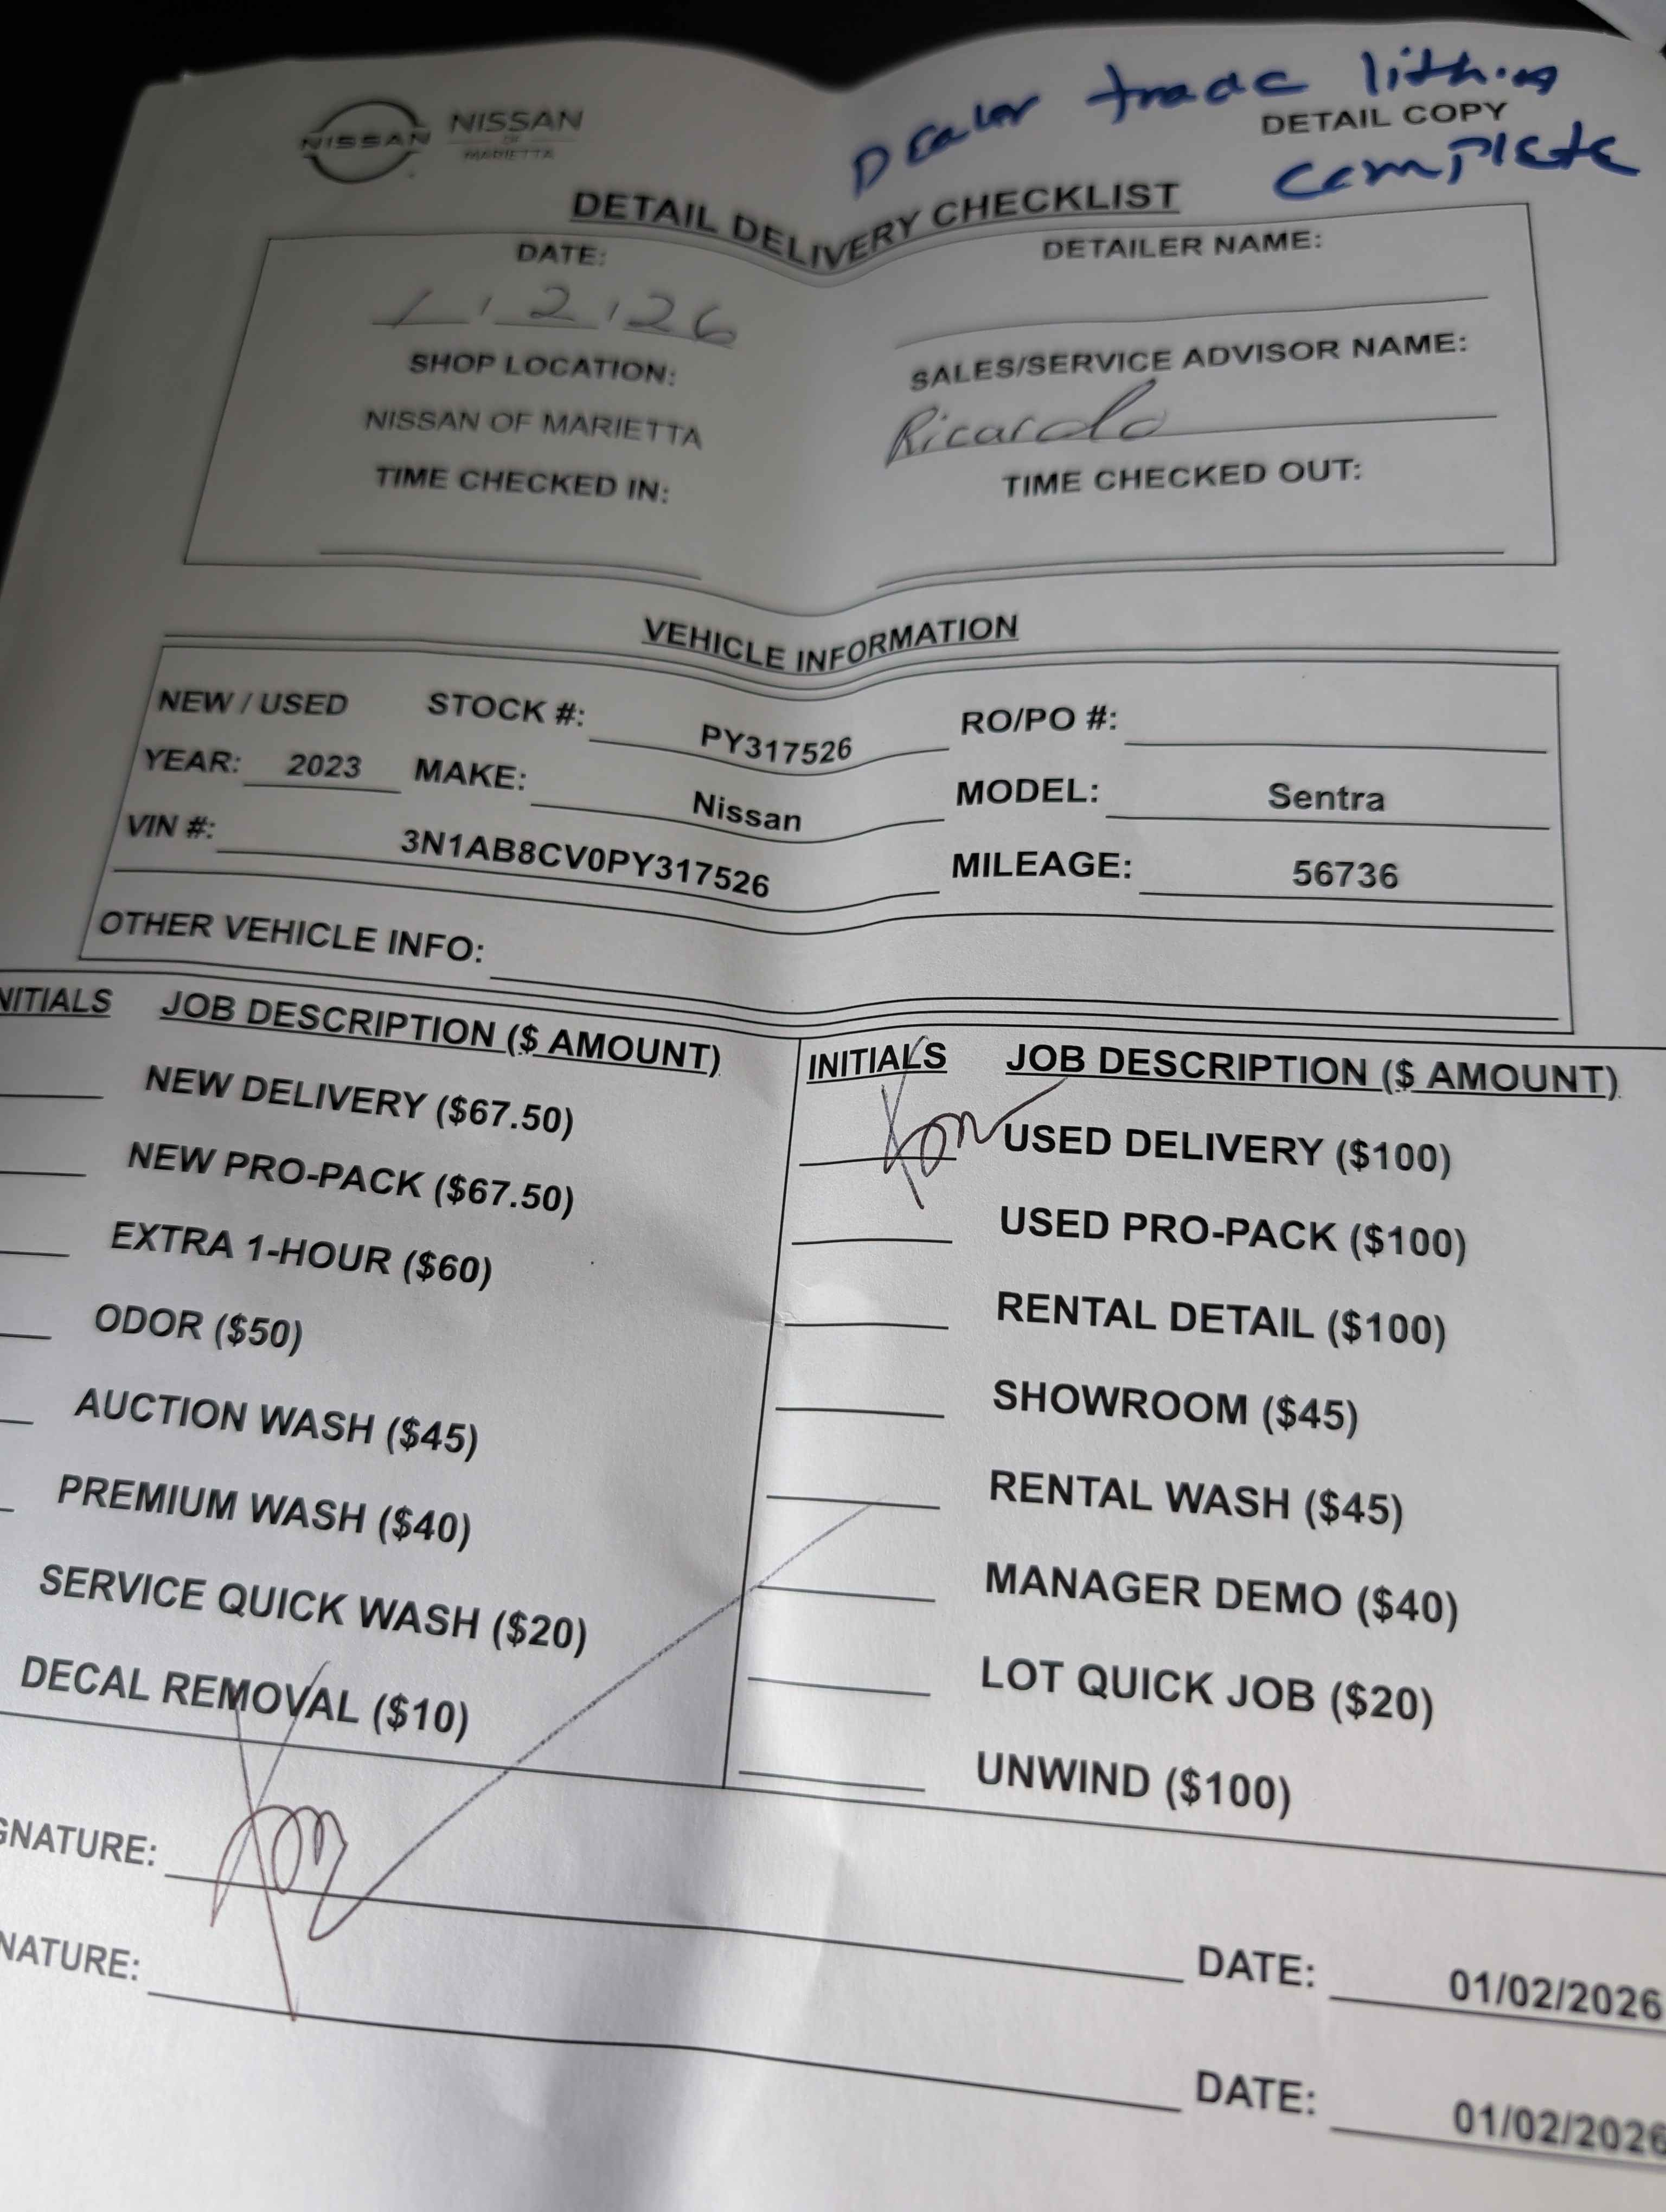 Dealer trade lithia
NISSAN NISSAN OF MARIETTA
DETAIL COPY
complete
DETAIL DELIVERY CHECKLIST
DATE: DETAILER NAME:
1 / 2 / 26
SHOP LOCATION: SALES/SERVICE ADVISOR NAME:
NISSAN OF MARIETTA Ricardo
TIME CHECKED IN: TIME CHECKED OUT:
VEHICLE INFORMATION
NEW / USED STOCK #: PY317526 RO/PO #:
YEAR: 2023 MAKE: Nissan MODEL: Sentra
VIN #: 3N1AB8CV0PY317526 MILEAGE: 56736
OTHER VEHICLE INFO:
NITIALS JOB DESCRIPTION ($ AMOUNT) INITIALS JOB DESCRIPTION ($ AMOUNT)
NEW DELIVERY ($67.50) USED DELIVERY ($100)
NEW PRO-PACK ($67.50) USED PRO-PACK ($100)
EXTRA 1-HOUR ($60) RENTAL DETAIL ($100)
ODOR ($50) SHOWROOM ($45)
AUCTION WASH ($45) RENTAL WASH ($45)
PREMIUM WASH ($40) MANAGER DEMO ($40)
SERVICE QUICK WASH ($20) LOT QUICK JOB ($20)
DECAL REMOVAL ($10) UNWIND ($100)
GNATURE: DATE: 01/02/2026
NATURE: DATE: 01/02/2026